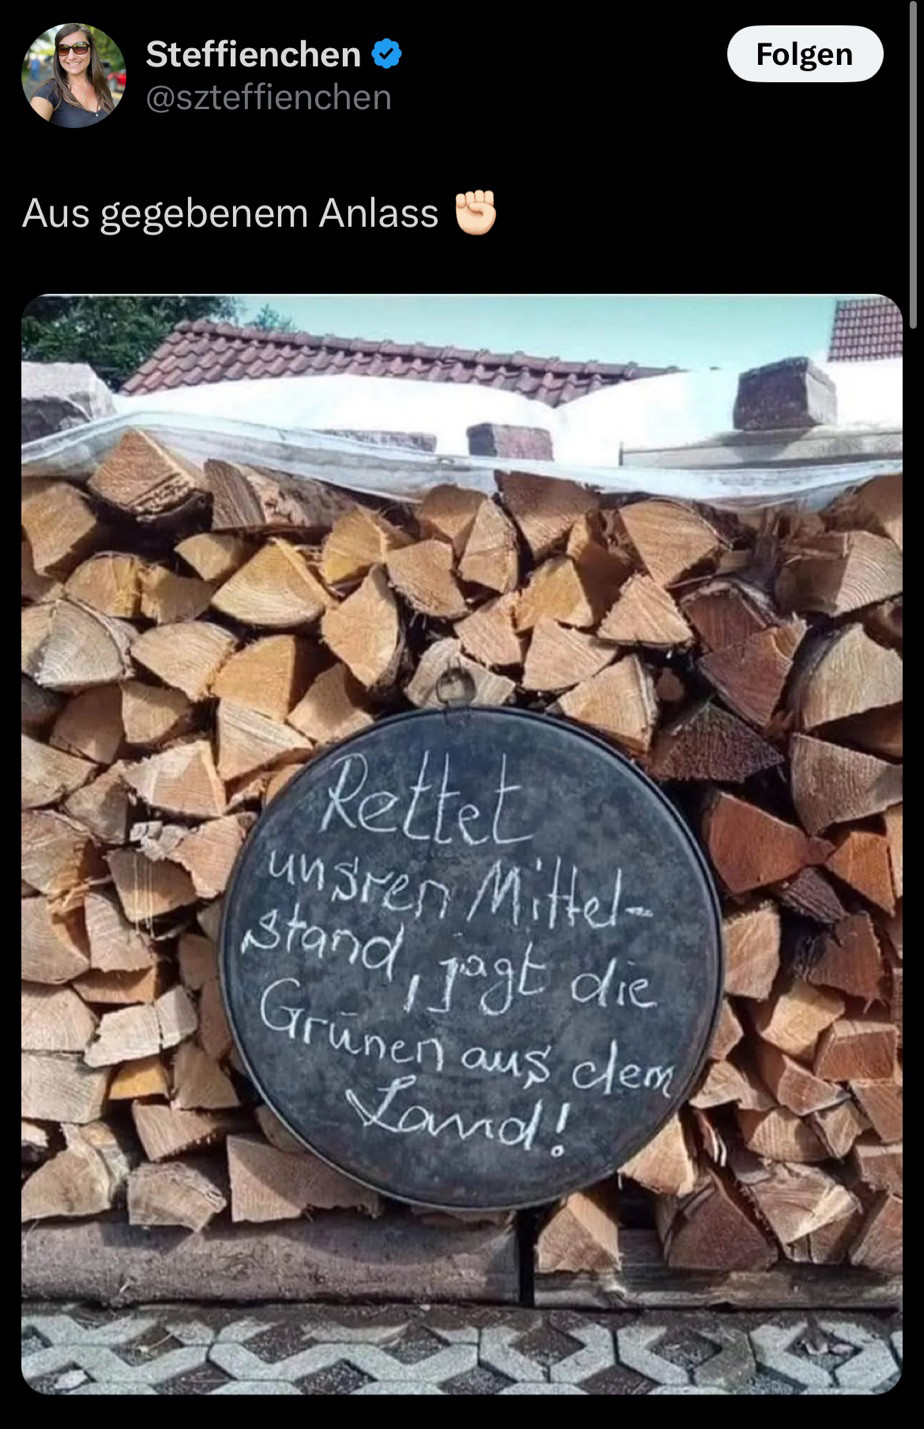 Steffienchen
@szteffienchen
Folgen
Aus gegebenem Anlass ✊🏻
Rettet
unsren Mittel-
stand, jagt die
Grünen aus dem
Land!